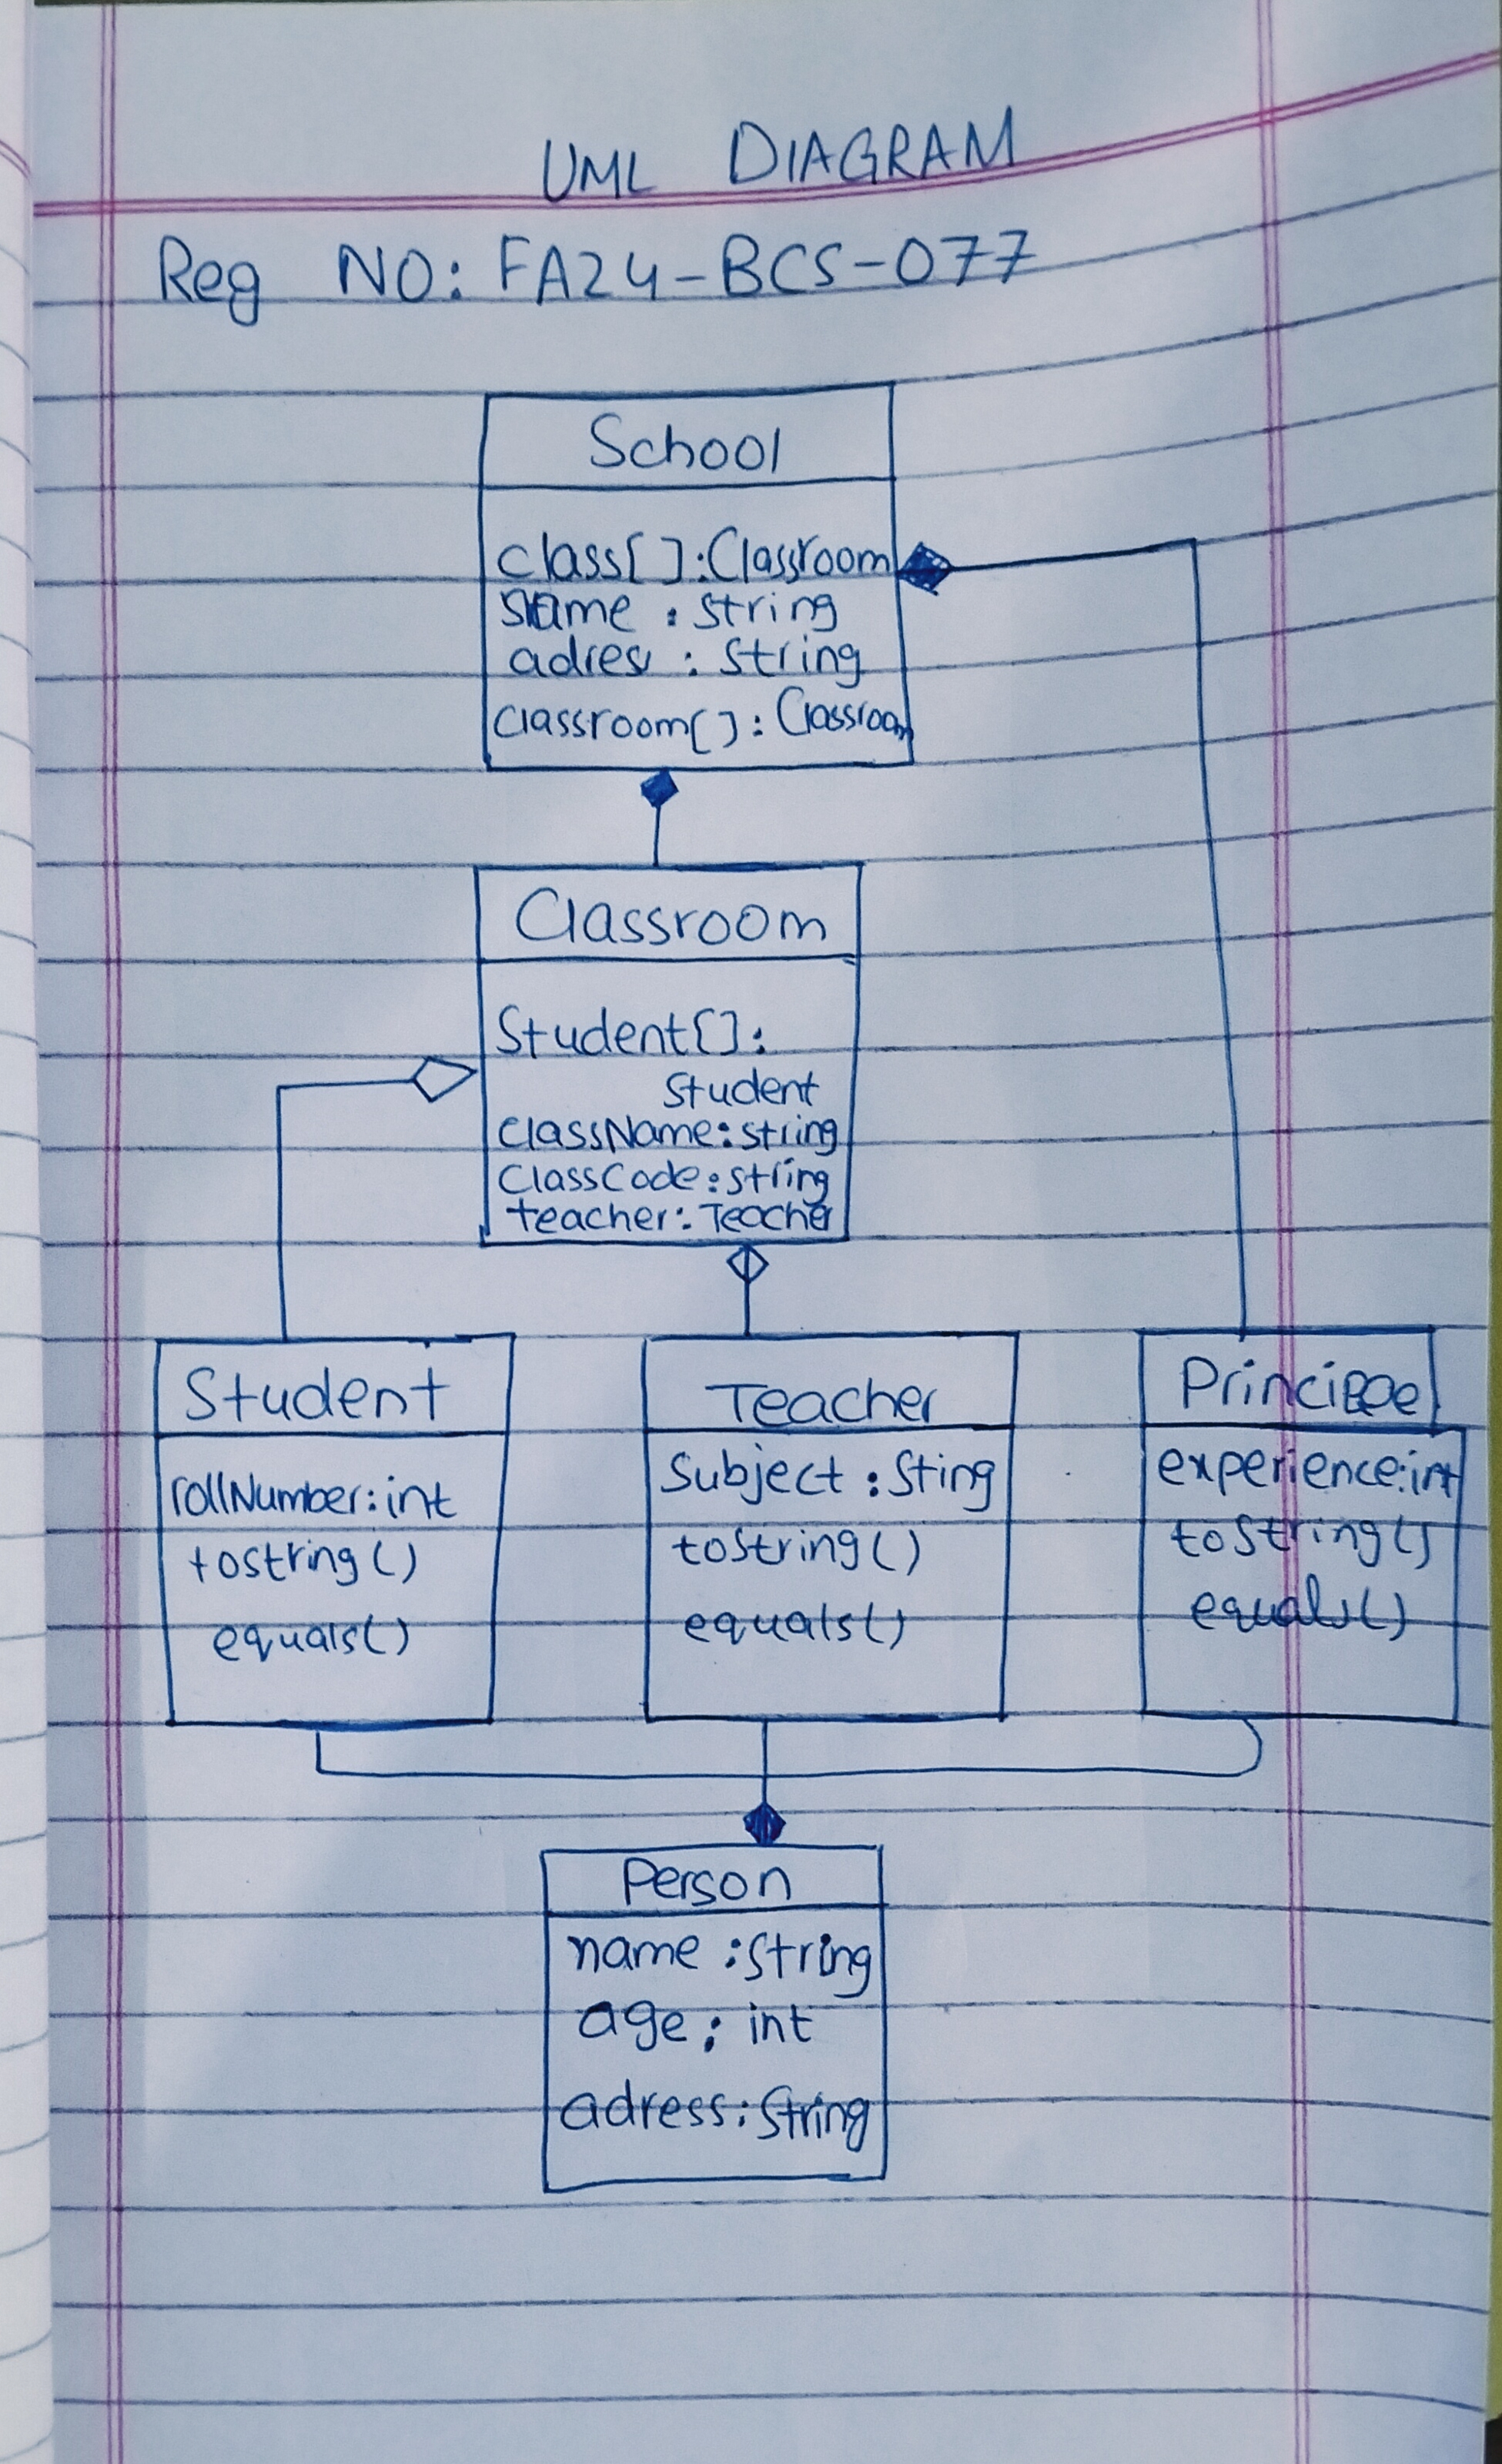 UML DIAGRAM
Reg NO: FA24-BCS-077
School
class[ ]:Classroom
name : string
adress : string
Classroom[ ] : Classroom
Classroom
Student[ ]:
Student
ClassName:string
ClassCode:string
teacher:Teacher
Student
rollNumber:int
tostring()
equals()
Teacher
Subject :Sting
tostring()
equals()
experience:int
tostring()
equals()
Person
name :String
age : int
adress:String